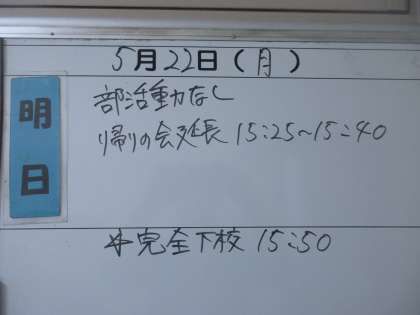 5月22日(月)
明日
部活動なし
帰りの会延長 15:25~15:40
*完全下校 15:50